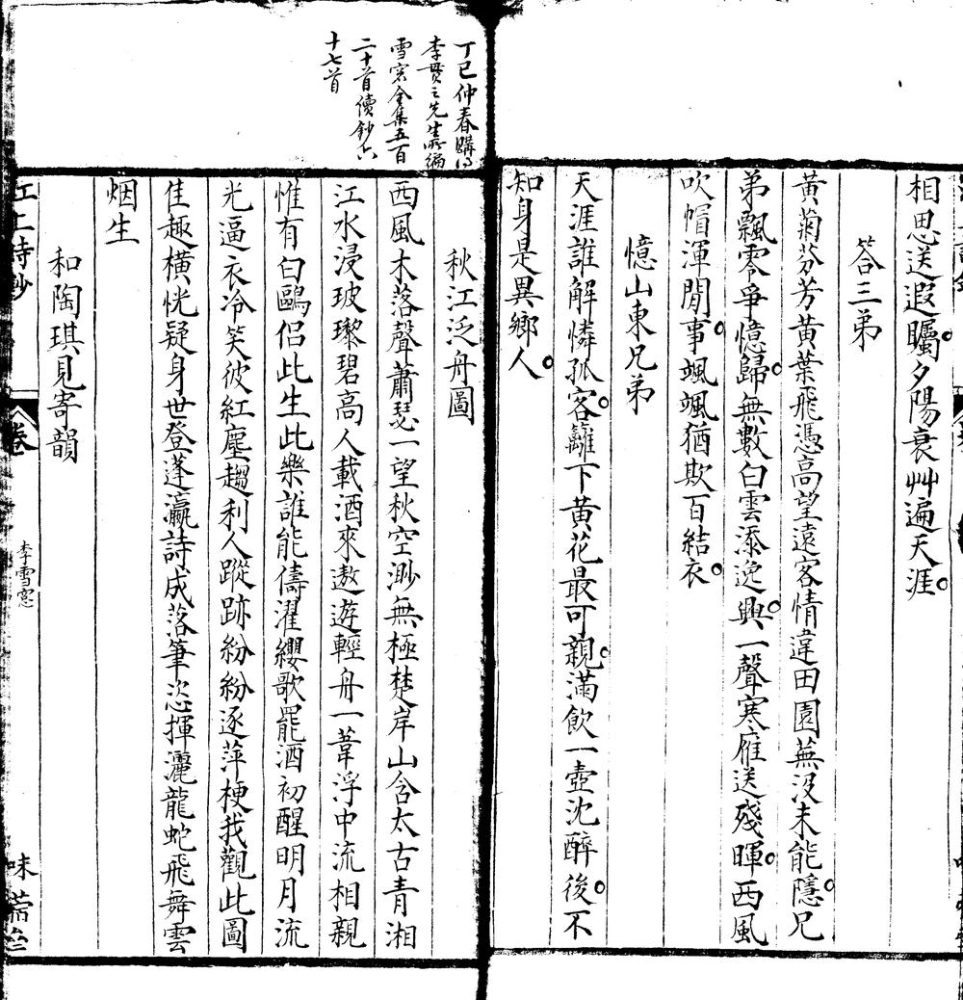 相思送遐矚夕陽衰艸遍天涯
答三弟
黃菊芬芳黃葉飛憑高望遠客情違田園蕪沒未能隱兄
弟飄零爭憶歸無數白雲添逸興一聲寒雁送殘暉西風
吹帽渾閒事颯颯猶欺百結衣
憶山東兄弟
天涯誰解憐孤客籬下黃花最可親滿飲一壺沈醉後不
知身是異鄉人
丁巳仲春購得
李貫之先生所編
雪窓全集五百
二十首續鈔六
十七首
秋江泛舟圖
西風木落聲蕭瑟一望秋空渺無極楚岸山含太古青湘
江水浸玻瓈碧高人載酒來遨遊輕舟一葦浮中流相親
惟有白鷗侶此生此樂誰能儔濯纓歌罷酒初醒明月流
光逼衣冷笑彼紅塵趨利人蹤跡紛紛逐萍梗我觀此圖
佳趣橫恍疑身世登蓬瀛詩成落筆恣揮灑龍蛇飛舞雲
烟生
和陶琪見寄韻
江上詩鈔
卷
李雪窓
味